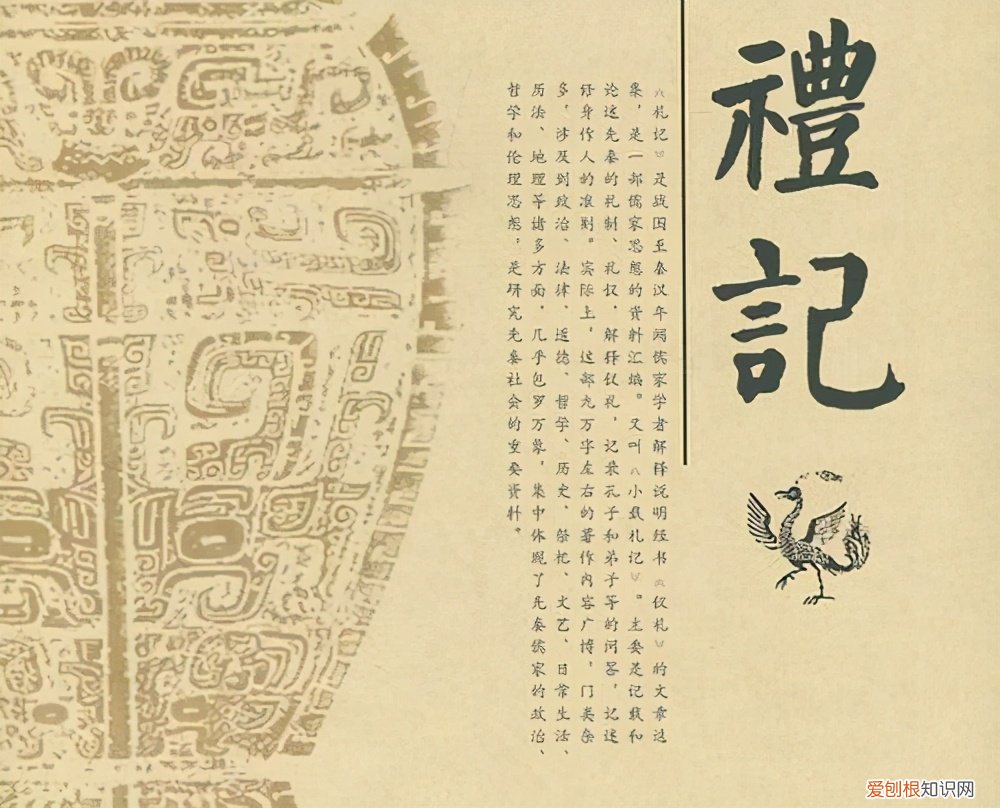 禮記
《礼记》是战国至秦汉年间儒家学者解释说明经书《仪礼》的文章选
集，是一部儒家思想的资料汇编。又叫《小戴礼记》。主要是记载和
论述先秦的礼制、礼仪，解释仪礼，记录孔子和弟子等的问答，记述
修身作人的准则。实际上，这部九万字左右的著作内容广博，门类杂
多，涉及到政治、法律、道德、哲学、历史、祭祀、文艺、日常生活、
历法、地理等诸多方面，几乎包罗万象，集中体现了先秦儒家的政治、
哲学和伦理思想，是研究先秦社会的重要资料。
爱刨根知识网